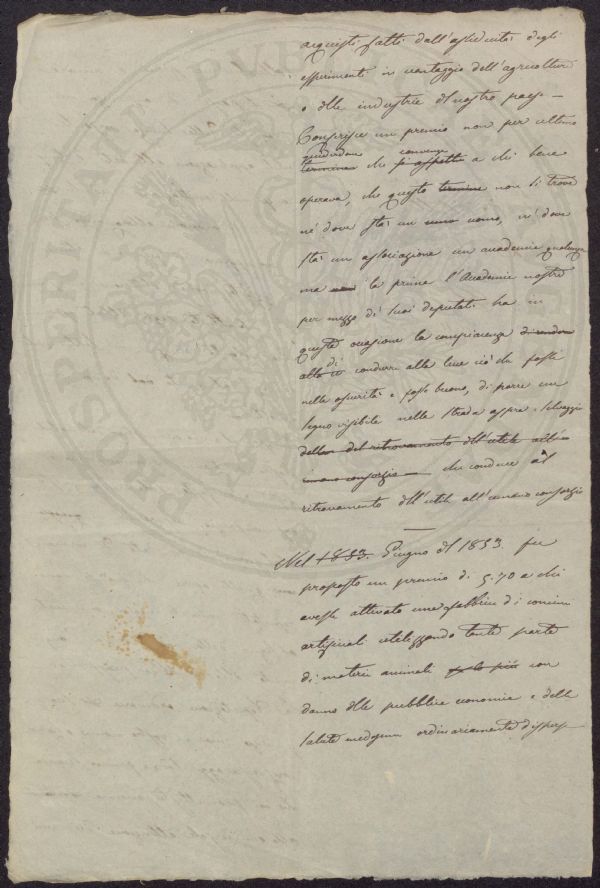 acquisti fatti dall'assiduità degli
esperimenti in vantaggio dell'agricoltura
e delle industrie del nostro paese —
Conferisce un premio non per ultimo
guiderdone convenga
termine che si aspetta a chi bene
operava, che questo termine non si trova
nè dove stà un uomo, nè dove
stà un associazione un accademia qualunque
ma la prima l'Accademia nostra
per mezzo di suoi deputati ha in
questa occasione la compiacenza di rendere
di
alla condurre alla luce ciò che fosse
nella oscurità e fosse buono, di porre un
segno visibile nella strada aspra selvaggia
della del ritrovamento dell'utile all'
umano consorzio — che conduce al
ritrovamento dell'utile all'umano consorzio
Nel 1853. Giugno del 1853. fu
proposto un premio di 5.70 a chi
avesse attivato una fabbrica di concimi
artificiali utilizzando tante parti
di materie animali per lo più con
danno della pubblica economia e della
salute medesima ordinariamente disperse